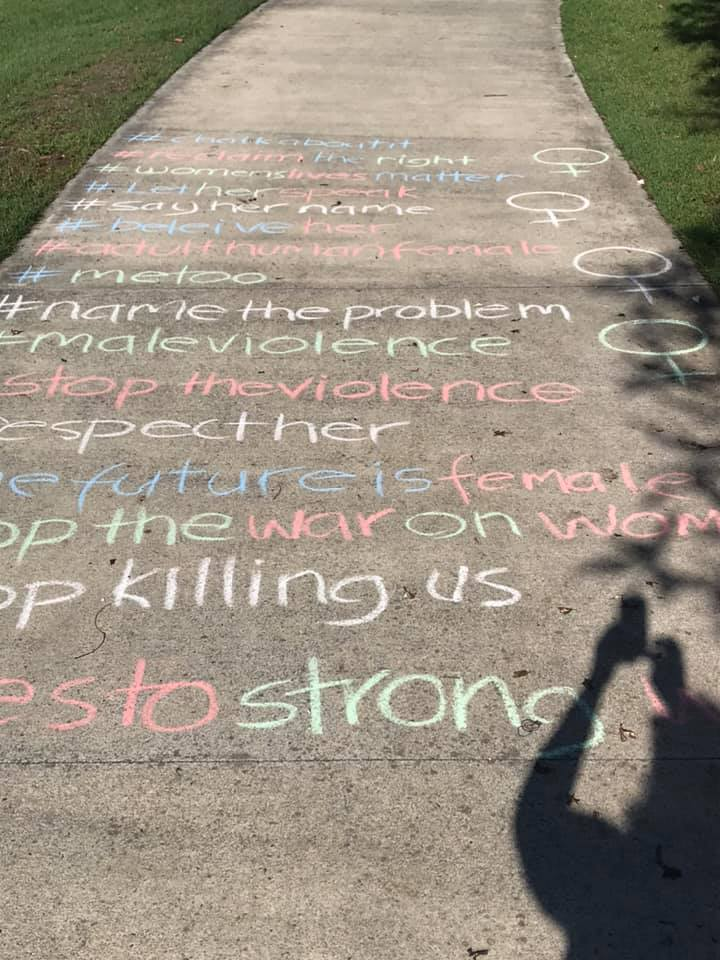 #chalkaboutit
#reclaim the right
#womenslivesmatter
#Letherspeak
#say her name
#beleive her
#adulthumanfemale
#metoo
#name the problem
#maleviolence
stop theviolence
especther
e future is female
op the war on wom
op killing us
es to strong